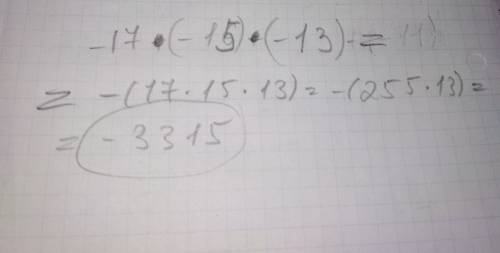 -17 · (-15) · (-13) =
= -(17 · 15 · 13) = -(255 · 13) =
= -3315